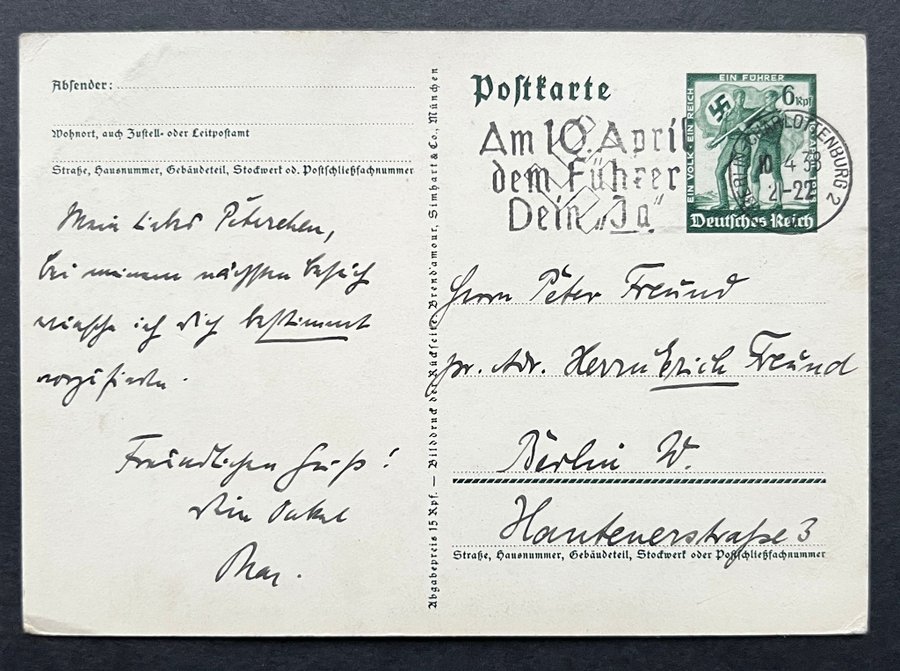 Absender:
Wohnort, auch Zustell- oder Leitpostamt
Straße, Hausnummer, Gebäudeteil, Stockwert od. Postschließfachnummer
Mein liebes Peterchen,
bei meinem nächsten Besuch
wünsche ich Dich bestimmt
vorzufinden.
Freundlichen Gruß!
Dein Onkel
Max.
Abgabepreis 15 Rpf. — Bilddruck der Rückseite Brend'amour, Simhart & Co., München
Postkarte
Am 10. April
dem Führer
Dein „Ja"
EIN VOLK · EIN REICH
EIN FÜHRER
6 Rpf
Deutsches Reich
BERLIN-CHARLOTTENBURG 2
10.4.38
21-22
Herrn Peter Freund
pr. Adr. Herrn Erich Freund
Berlin W.
Straße 3
Straße, Hausnummer, Gebäudeteil, Stockwerk oder Postschließfachnummer